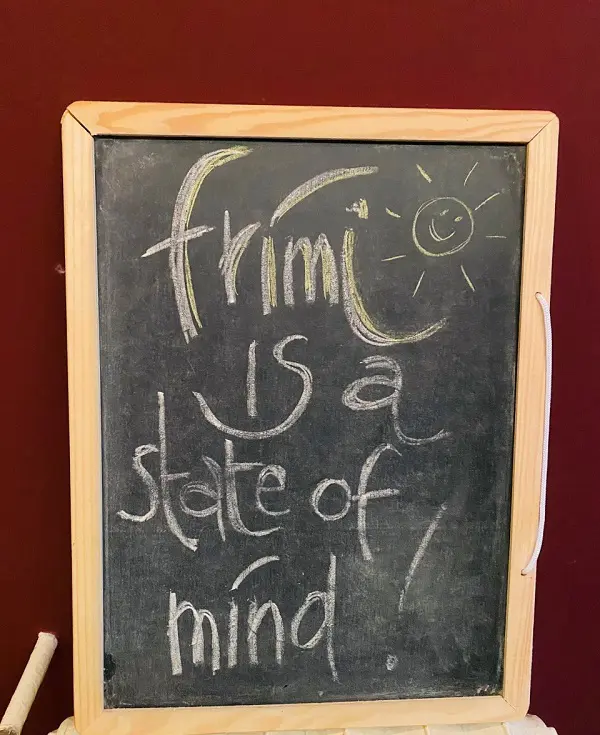 frimi
is a
state of
mind!